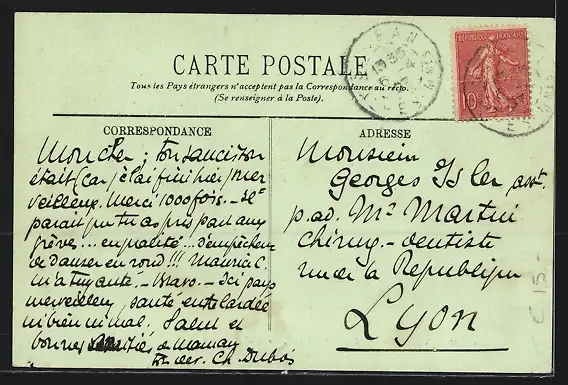 CARTE POSTALE
Tous les Pays étrangers n'acceptent pas la Correspondance au recto.
(Se renseigner à la Poste).
CORRESPONDANCE
Mon cher; ton saucisson
était (car j'ai fini hier) mer
veilleux. Merci 1000 fois. - Il
paraît que tu as pris part aux
grèves... en qualité... d'empêcheur
de danser en rond!!! Maurice C.
m'a - Bravo. - Ici pays
merveilleux, santé entrelardée
ni bien ni mal. Salut et
bonnes de Maman
Ch. Dubós
ADRESSE
Monsieur
Georges Isler asst.
p. ad. Mr Martin
chirurg.-dentiste
rue de la Republique
Lyon
RÉPUBLIQUE FRANÇAISE
10c
€ 15.-